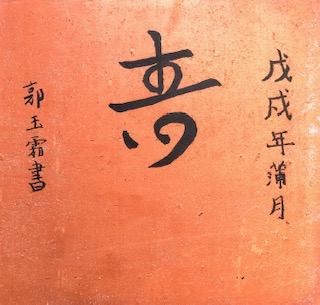 戊戌年蒲月
郭玉霜書